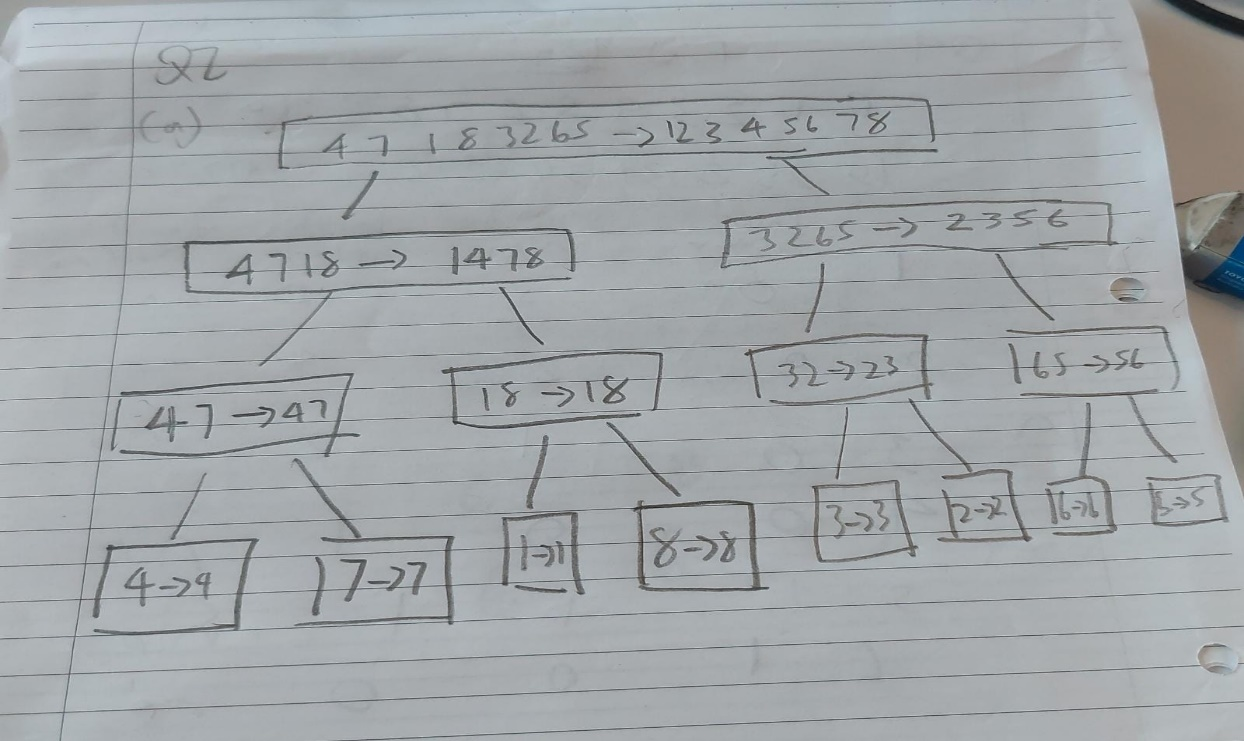 Q2
(a)
4 7 1 8 3 2 6 5 → 1 2 3 4 5 6 7 8
4 7 1 8 → 1 4 7 8
3 2 6 5 → 2 3 5 6
4 7 → 4 7
1 8 → 1 8
3 2 → 2 3
6 5 → 5 6
4 → 4
7 → 7
1 → 1
8 → 8
3 → 3
2 → 2
6 → 6
5 → 5